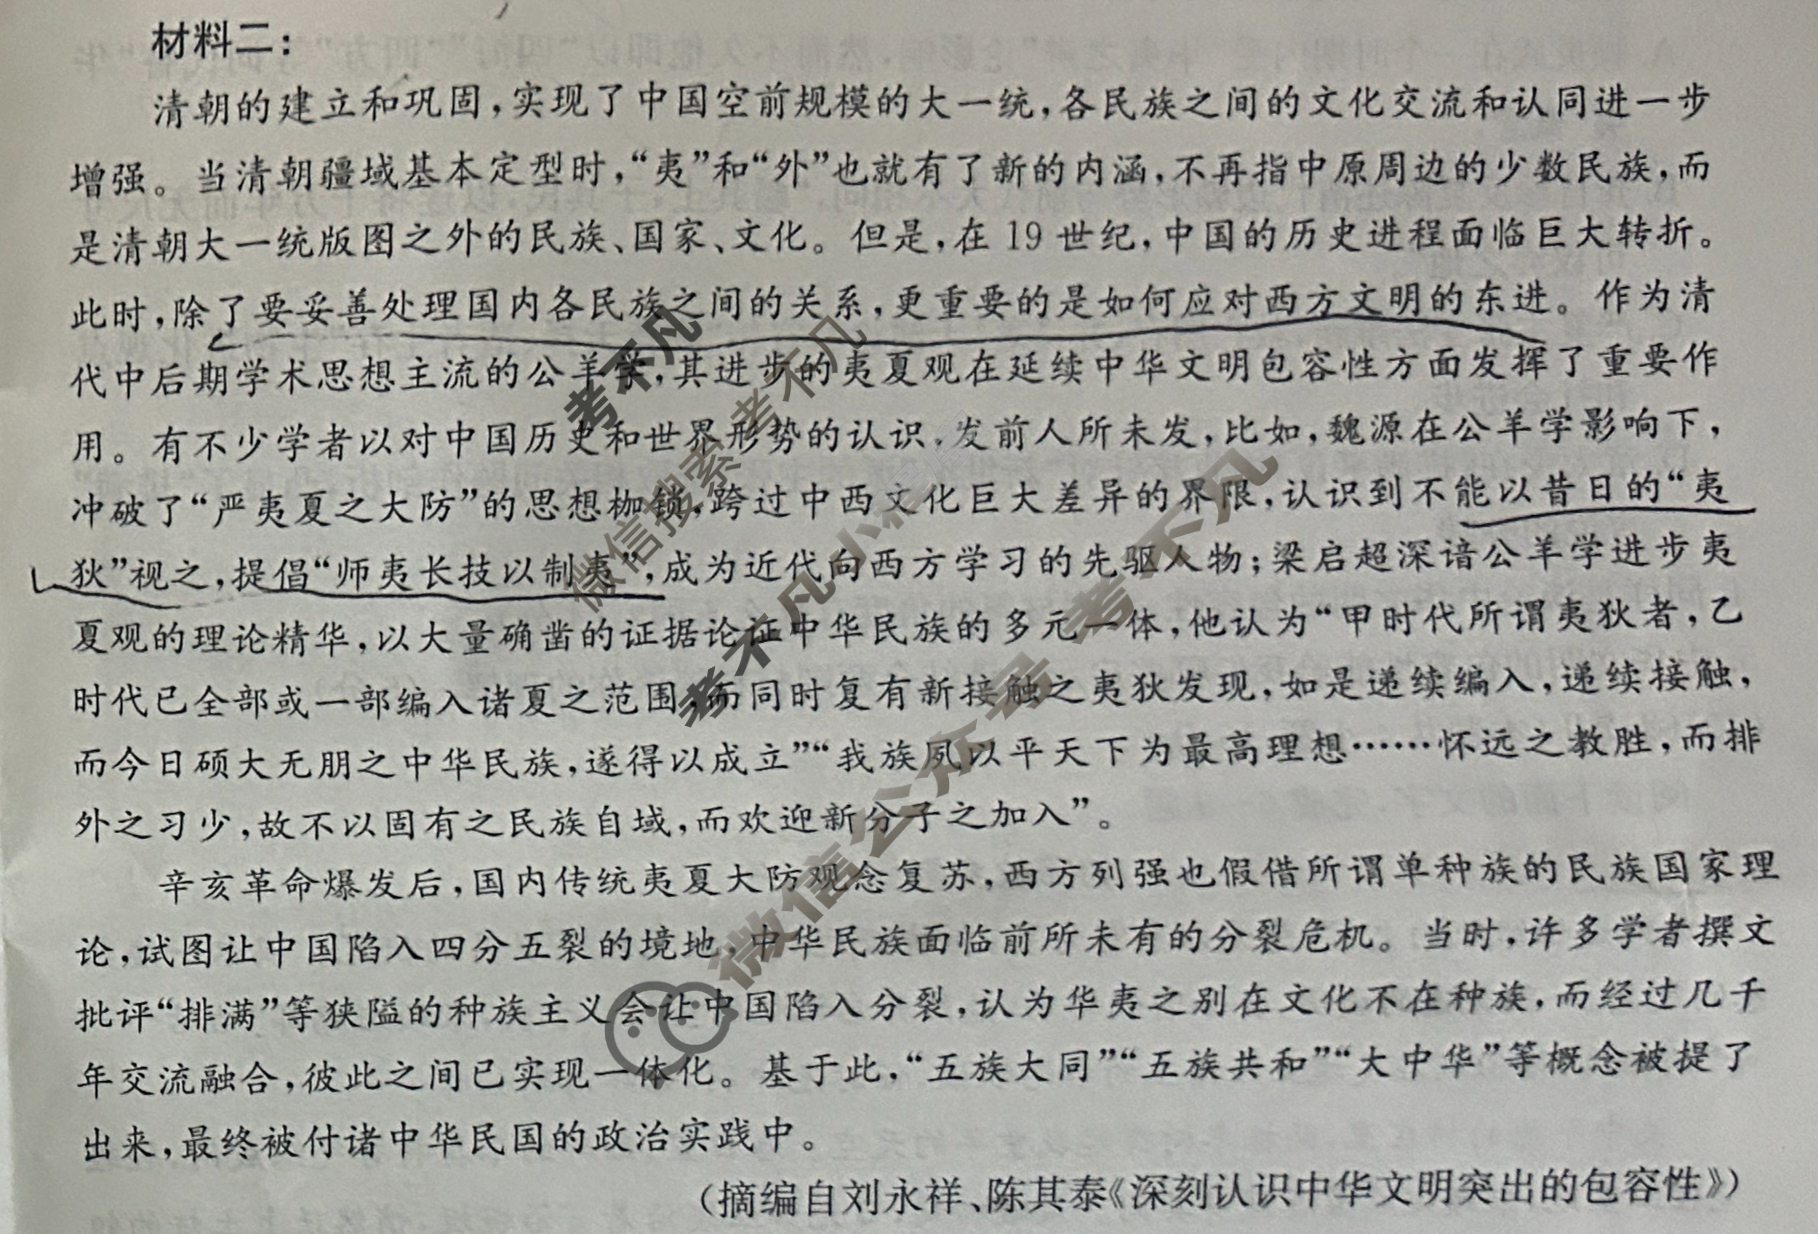 材料二：
清朝的建立和巩固，实现了中国空前规模的大一统，各民族之间的文化交流和认同进一步
增强。当清朝疆域基本定型时，“夷”和“外”也就有了新的内涵，不再指中原周边的少数民族，而
是清朝大一统版图之外的民族、国家、文化。但是，在19世纪，中国的历史进程面临巨大转折。
此时，除了要妥善处理国内各民族之间的关系，更重要的是如何应对西方文明的东进。作为清
代中后期学术思想主流的公羊学，其进步的夷夏观在延续中华文明包容性方面发挥了重要作
用。有不少学者以对中国历史和世界形势的认识，发前人所未发，比如，魏源在公羊学影响下，
冲破了“严夷夏之大防”的思想枷锁，跨过中西文化巨大差异的界限，认识到不能以昔日的“夷
狄”视之，提倡“师夷长技以制夷”，成为近代向西方学习的先驱人物；梁启超深谙公羊学进步夷
夏观的理论精华，以大量确凿的证据论证中华民族的多元一体，他认为“甲时代所谓夷狄者，乙
时代已全部或一部编入诸夏之范围，而同时复有新接触之夷狄发现，如是递续编入，递续接触，
而今日硕大无朋之中华民族，遂得以成立”“我族夙以平天下为最高理想……怀远之教胜，而排
外之习少，故不以固有之民族自域，而欢迎新分子之加入”。
辛亥革命爆发后，国内传统夷夏大防观念复苏，西方列强也假借所谓单种族的民族国家理
论，试图让中国陷入四分五裂的境地，中华民族面临前所未有的分裂危机。当时，许多学者撰文
批评“排满”等狭隘的种族主义会让中国陷入分裂，认为华夷之别在文化不在种族，而经过几千
年交流融合，彼此之间已实现一体化。基于此，“五族大同”“五族共和”“大中华”等概念被提了
出来，最终被付诸中华民国的政治实践中。
（摘编自刘永祥、陈其泰《深刻认识中华文明突出的包容性》）
考不凡
微信搜索 考不凡
考不凡小
微信公众号 考不凡